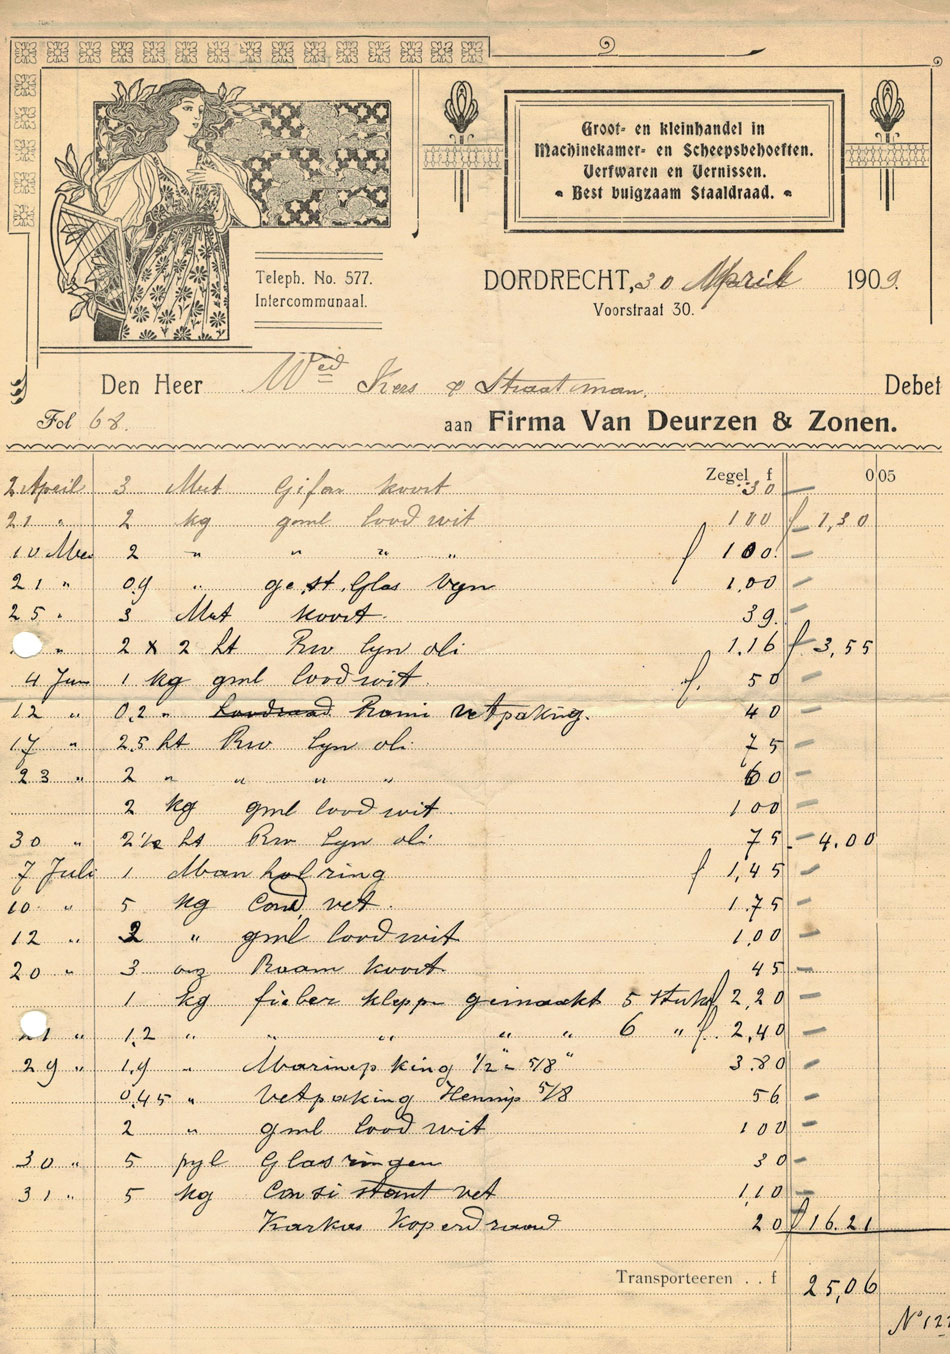 Groot- en kleinhandel in
Machinekamer- en Scheepsbehoeften.
Verfwaren en Vernissen.
Best buigzaam Staaldraad.
Teleph. No. 577.
Intercommunaal.
DORDRECHT, 30 April 1909.
Voorstraat 30.
Den Heer Wed Kers & Straatman. Debet
Fol 68. aan Firma Van Deurzen & Zonen.
Zegel f 0 05
2 April 3 Met koort 30
21 " 2 kg gml loodwit 100 f 1,30
10 Mei 2 " " " " f 100.
21 " 0.9 " gest. Glas 1,00
25 " 3 Met koort. 39.
" 2 x 2 Lt Rw Lyn oli 1.16 f 3,55
4 Jun 1 kg gml loodwit. f. 50
12 " 0.2 " Rami vetpaking. 40
17 " 2.5 Lt Rw Lyn oli 75
23 " 2 " " " " 60
2 kg gml loodwit 100
30 " 2½ Lt Rw Lyn oli 75 4.00
7 Juli 1 Manholring f 1,45
10 " 5 kg Cond vet. 1.75
12 " 2 " gml loodwit 1,00
20 " 3 Raam koort 45
1 kg fieber kleppe gemaakt 5 stuk f 2,20
21 " 1,2 " " " " 6 " f. 2,40
29 " 1,9 " Marinep king 1/2" 5/8" 3.80
0,45 " Vetpaking Hennip 5/8 56
2 " gml loodwit 100
30 " 5 pyl Glasringen 30
31 " 5 kg Consistant vet 1,10
Karkas Koperdraad 20 f 16.21
Transporteeren . . f 25,06